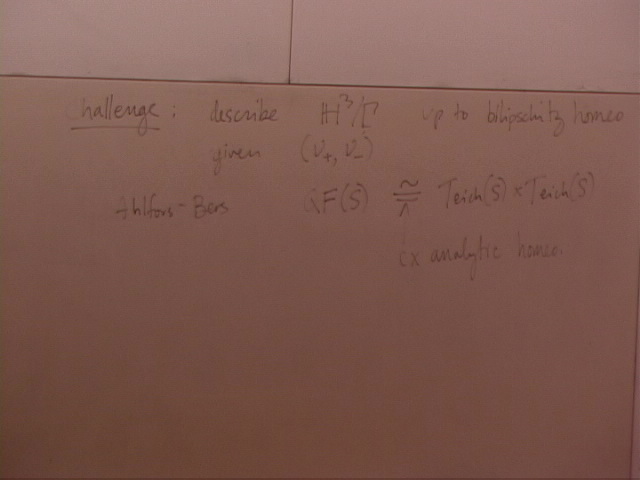 Challenge: describe ℍ³/Γ up to bilipschitz homeo
given (ν₊, ν₋)
Ahlfors-Bers QF(S) ≅ Teich(S) × Teich(S)
^
cx analytic homeo.